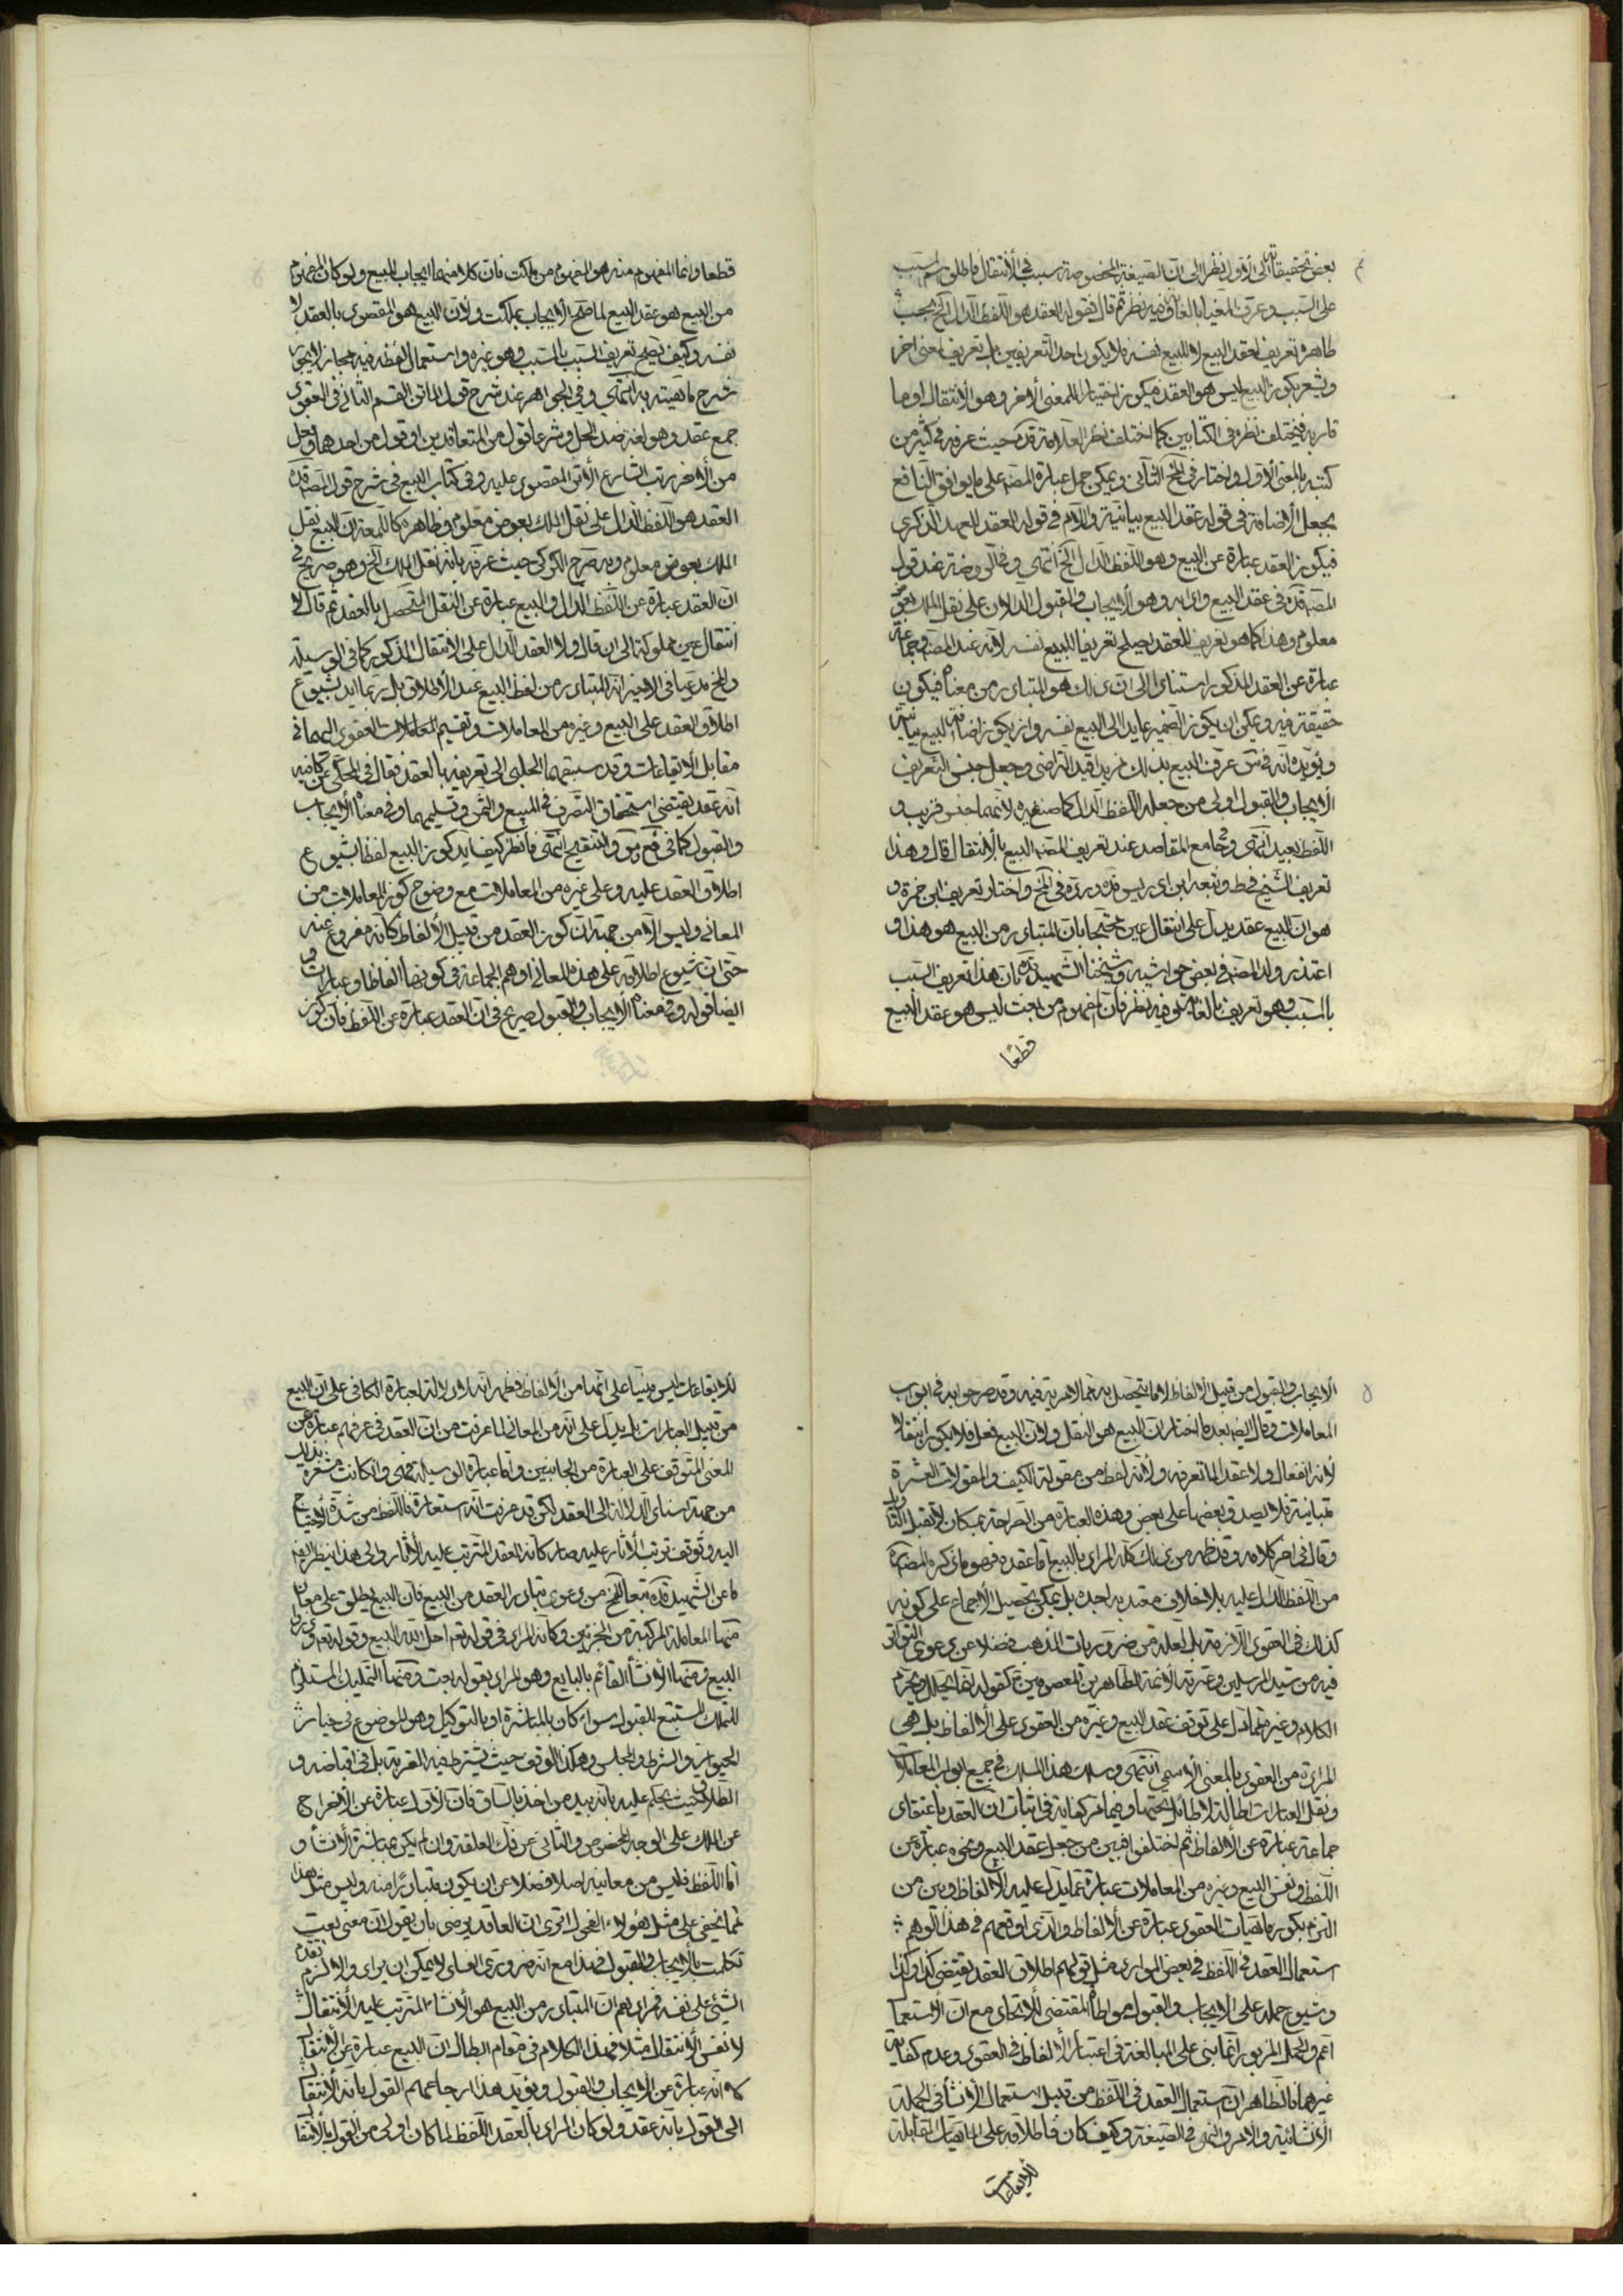 بعض تحقيقاته الى الأول نظرا الى ان الصيغة المخصوصة سبب فى الأنتقال فاطلق اسم المسبب
على السبب وعرف المغيا بالغاية وفيه نظر ثم قال فقوله العقد هو اللفظ الدال الخ بحسب
ظاهره تعريف لعقد البيع لا للبيع نفسه فلا يكون احد التعريفين بل تعريف لمعنى اخر
ويشعر بكون البيع ليس هو العقد فيكون اختيارا للمعنى الأخر وهو الأنتقال او ما
قاربه فيختلف نظره فى الكتابين كما اختلف نظر العلامة قده حيث عرفه فى كثير من
كتبه بالمعنى الأول واختار فى المخ الثانى ويمكن حمل عبارة المصنف على ما يوافق النافع
بجعل الأضافة فى قوله عقد البيع بيانية واللام فى قوله العقد للعهد الذكرى
فيكون العقد عبارة عن البيع وهو اللفظ الدال الخ انتهى وفى الروضة عند قول
المصنف قده فى عقد البيع وادابه وهو الأيجاب والقبول الدالان على نقل الملك بعوض
معلوم وهذا كما هو تعريف للعقد يصلح تعريفا للبيع نفسه لأنه عند المصنف وجماعة
عبارة عن العقد المذكور استنادا الى ان ذلك هو المتبادر من معناه فيكون
حقيقة فيه ويمكن ان يكون الضمير عايدا الى البيع نفسه وان يكون اضافة البيع بيانية
ويؤيده انه فى س عرف البيع بذلك مزيدا قيد التراضى وجعل جنس التعريف
الأيجاب والقبول اولى من جعله اللفظ الدال كما صنع غيره لانهما جنس قريب و
اللفظ بعيد انتهى وفى جامع المقاصد عند تعريف المصنف البيع بالأنتقال قال وهذا
تعريف الشيخ فى ط وتبعه ابن ادريس قده ورده فى المخ واختار تعريف ابن حمزة و
هو ان البيع عقد يدل على انتقال عين محتجا بان المتبادر من البيع هو هذا و
اعتذر ولد المصنف فى بعض حواشيه وشيخنا الشهيد قده بان هذا تعريف السبب
بالمسبب وهو تعريف بالغاية وفيه نظر فان المفهوم من بعت ليس هو عقد البيع
قطعًا
قطعا وانما المفهوم منه هو المفهوم من ملكت فان كلا منهما ايجاب البيع ولو كان المفهوم
من البيع هو عقد البيع لما صح الأيجاب بملكت ولأن البيع هو المقصود بالعقد لا
نفسه وكيف تصح تعريف السبب بالمسبب وهو غيره واستعمال لفظه فيه مجاز لا يجوز
شرح ماهيته به انتهى وفى الجواهر عند شرح قول الماتن القسم الثانى فى العقود
جمع عقد وهو لغة ضد الحل وشرعا قول من المتعاقدين او قول من احدهما وفعل
من الأخر رتب الشارع الأثر المقصود عليه وفى كتاب البيع فى شرح قول المصنف قده
العقد هو اللفظ الدال على نقل الملك بعوض معلوم وظاهره كاللمعة ان البيع نقل
الملك بعوض معلوم وبه صرح الكركى حيث عرفه بانه نقل الملك الخ وهو صريح فى
ان العقد عبارة عن اللفظ الدال والبيع عبارة عن النقل المتحصل بالعقد ثم قال لا
انتقال عين مملوكة الى ان قال ولا العقد الدال على الانتقال المذكور كما فى الوسيلة
والمخ مدعيا فى الاخير انه المتبادر من لفظ البيع عند الأطلاق بل ربما ايد بشيوع
اطلاق العقد على البيع وغيره من المعاملات وتقسيم المعاملات العقود اليهما فى
مقابل الأيقاعات وقد سبقهما الحلبى الى تعريفه بالعقد فقال فى المحكى عن كافيه
انه عقد يقتضى استحقاق التصرف فى المبيع والثمن وتسليمهما وفى معناه الأيجاب
والقبول كما فى فع وس والتنقيح انتهى فانظر كيف ايد كون البيع لفظا بشيوع
اطلاق العقد عليه وعلى غيره من المعاملات مع وضوح كون المعاملات من
المعانى وليس الا من جهة ان كون العقد من قبيل الألفاظ كانه مفروغ عنه
حتى ان شيوع اطلاقه على هذه المعانى اوهم الجماعة فى كونها الفاظا وعبارات و
ايضا قوله وفى معناه الأيجاب والقبول صريح فى ان العقد عبارة عن اللفظ فان كون
الايجاب والقبول من قبيل الألفاظ لا ما يتحصل به مما لا مرية فيه وقد صرحوا به فى ابواب
المعاملات وقال ايضا بعد ما اختار ان البيع هو النقل ولأن البيع فعل فلا يكون انتقالا
لأنه انفعال ولا عقد الما تعرفه ولأنه لفظ من مقولة الكيف والمقولات العشرة
متباينة فلا يصدق بعضها على بعض وهذه العبارة من الصراحة بمكان لا تقبل التاويل
وقال فى اخر كلامه وقد ظهر من ذلك كله المراد بالبيع اما عقده فهو ما ذكره المصنف
من اللفظ الدال عليه بلا خلاف معتد به اجده بل يمكن تحصيل الأجماع على كونه
كذلك فى العقود اللازمة بل لعله من ضروريات المذهب فضلا عن دعوى التواتر
فيه من سيد المرسلين وعترته الأئمة الطاهرين المعصومين كقوله انما يحلل ويحرم
الكلام وغيره مما دل على توقف عقد البيع وغيره من العقود على الالفاظ بل هى
المرادة من العقود بالمعنى الأسمى انتهى وسلك هذا المسلك فى جميع ابواب المعاملات
ونقل العبارات اطالة لا طائل تحتها وفيما مر كفاية فى اثبات ان العقد باعتقاد
جماعة عبارة عن الألفاظ ثم اختلفوا فبين من جعل عقد البيع ونحوه عبارة عن
اللفظ ونفس البيع وغيره من المعاملات عبارة عما يدل عليه الألفاظ وبين من
التزم بكون ماهيات العقود عبارة عن الألفاظ والذى اوقعهم فى هذا الوهم
استعمال العقد فى اللفظ فى بعض الموارد مثل قولهم اطلاق العقد يقتضى كذا وكذا
وشيوع حمله على الايجاب والقبول مواطأ المقتضى للاتحاد مع ان الاستعمال
اعم والحمل المزبور انما بنى على المبالغة فى اعتبار الألفاظ فى العقود وعدم كفاية
غيرها فالظاهر ان استعمال العقد فى اللفظ من قبيل استعمال الأنشاء فى الجملة
الأنشائية والامر والنهى فى الصيغة وكيف كان فاطلاقه على الماهيات المقابلة
للأيقاعات
للايقاعات ليس مبنيا على انها من الألفاظ فظهر انه لا دلالة لعبارة الكافى على ان البيع
من قبيل العبارات بل يدل على انه من المعانى لما عرفت من ان العقد فى عرفهم عبارة عن
المعنى المتوقف على العبارة من الجانبين واما عبارة الوسيلة فهى وان كانت مشعرة بذلك
من جهة اسناد الدلالة الى العقد لكن قد عرفت انه استعارة فاللفظ من شدة الأحتياج
اليه وتوقف ترتب الأثار عليه صار كانه العقد المترتب عليه الأثار والى هذا ينظر ايضا
ما عن الشهيد قده تبعا للمخ من دعوى تبادر العقد من البيع فان البيع يطلق على معان
منها المعاملة المركبة من الجزئين وكانه المراد فى قوله تعم احل الله البيع وقوله تعم وذروا
البيع ومنها الأنشاء القائم بالبايع وهو المراد بقوله بعت ومنها التمليك المستلزم
للتملك المستتبع للقبول سواء كان بالمباشرة او بالتوكيل وهو الموضوع فى خيار
الحيوان والشرط والمجلس وهكذا الوقف حيث يشترط فيه القربة بل فى اقباضه و
الطلاق حيث يحكم عليه بانه بيد من اخذ بالساق فان الأول عبارة عن الأخراج
عن الملك على الوجه المخصوص والثانى عن فك العلقة وان لم يكن بمباشرة الأنشاء و
اما اللفظ فليس من معانيه اصلا فضلا عن ان يكون متبادرا منه وليس مثل هذا
مما يخفى على مثل هؤلاء الفحول اترى ان العاقد يرضى بان يقول ان معنى بعت
تكلمت بالأيجاب والقبول فهذا مع انه ضرورى الفساد لا يمكن ان يراد والا لزم تقدم
الشئ على نفسه فمرادهم ان المتبادر من البيع هو الأنشاء المترتب عليه الأنتقال
لا نفس الأنتقال مثلا فهذا الكلام فى مقام ابطال ان البيع عبارة عن الأنتقال
لا انه عبارة عن الايجاب والقبول ويؤيد هذا ارجاعهم القول بانه الأنتقال
الى القول بانه عقد ولو كان المراد بالعقد اللفظ لما كان اولى من القول بالأنتقال